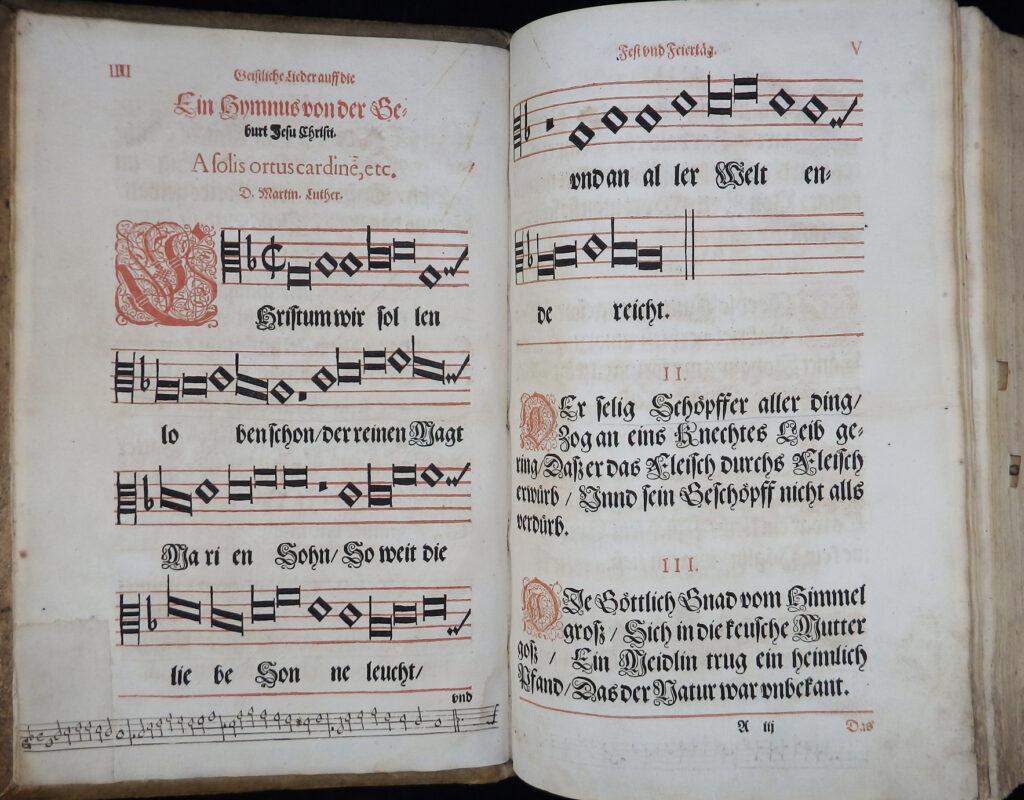 IIII
Geistliche Lieder auff die
Ein Hymnus von der Ge-
burt Jesu Christi.
A solis ortus cardinē, etc.
D. Martin. Luther.
CHristum wir sol len
lo ben schon/ der reinen Magt
Ma ri en Sohn/ So weit die
lie be Son ne leucht/
vnd
Fest vnd Feiertäg.
V
vnd an al ler Welt en-
de reicht.
II.
DEr selig Schöpffer aller ding/
Zog an eins Knechtes Leib ge-
ring/ Daß er das Fleisch durchs Fleisch
erwürb / Vnnd sein Geschöpff nicht alls
verdürb.
III.
DIe Göttlich Gnad vom Himmel
groß / Sich in die keusche Mutter
goß / Ein Meidlin trug ein heimlich
Pfand/ Das der Natur war vnbekant.
A iij
Das